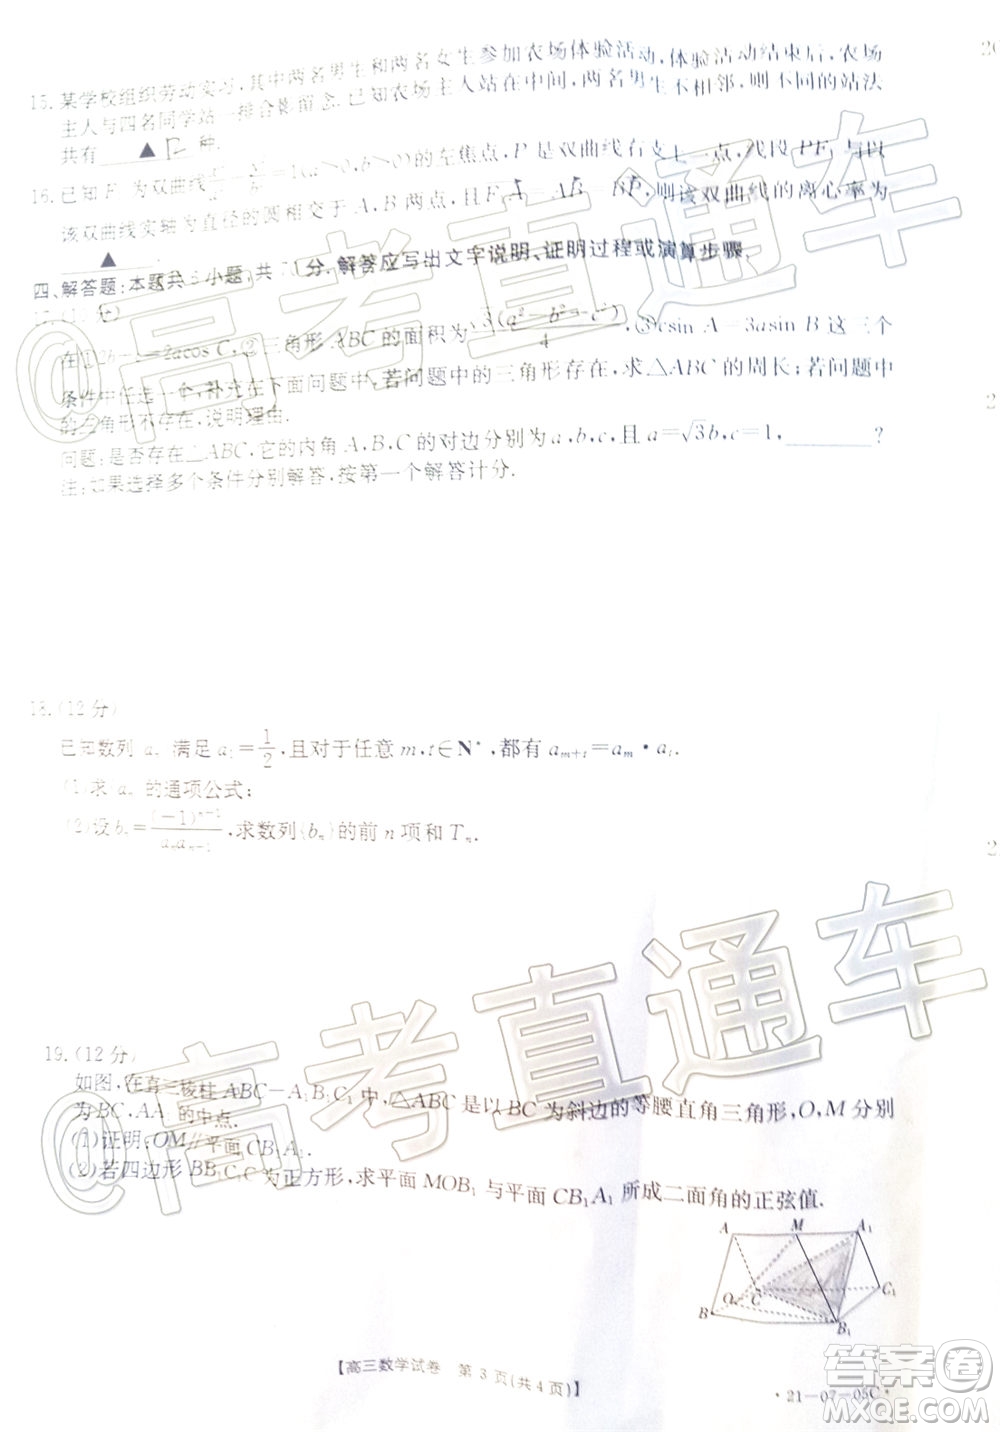 15.某学校组织劳动实习,其中两名男生和两名女生参加农场体验活动,体验活动结束后,农场
主人与四名同学站一排合影留念.已知农场主人站在中间,两名男生不相邻,则不同的站法
共有 ▲ 种.
16.已知F 为双曲线 的左焦点,P 是双曲线右支上一点,线段PF 与以
该双曲线实轴为直径的圆相交于A,B两点,且 则该双曲线的离心率为
▲
四、解答题:本题共6小题,共70分.解答应写出文字说明、证明过程或演算步骤.
17.(10分)
在①2b =2acos C,②三角形ABC的面积为 ,③csin A=3asin B 这三个
条件中任选一个,补充在下面问题中,若问题中的三角形存在,求△ABC的周长;若问题中
的三角形不存在,说明理由.
问题:是否存在△ABC,它的内角A,B,C的对边分别为a,b,c,且a=√3b,c=1,________?
注:如果选择多个条件分别解答,按第一个解答计分.
18.(12分)
已知数列 a 满足a₁=1/2,且对于任意m,t∈N*,都有aₘ₊ₜ=aₘ·aₜ.
(1)求 a 的通项公式;
(2)设b ,求数列{bₙ}的前n项和Tₙ.
19.(12分)
如图,在直三棱柱ABC-A₁B₁C₁中,△ABC是以BC为斜边的等腰直角三角形,O,M分别
为BC,AA₁的中点.
(1)证明:OM//平面CB₁A₁.
(2)若四边形BB₁C₁C为正方形,求平面MOB₁与平面CB₁A₁所成二面角的正弦值.
A M A₁
O C C₁
B B₁
【高三数学试卷 第3页(共4页)】
·21-07-05C·
@高考直通车
@高考直通车
答案圈
MXQE.COM
2
2